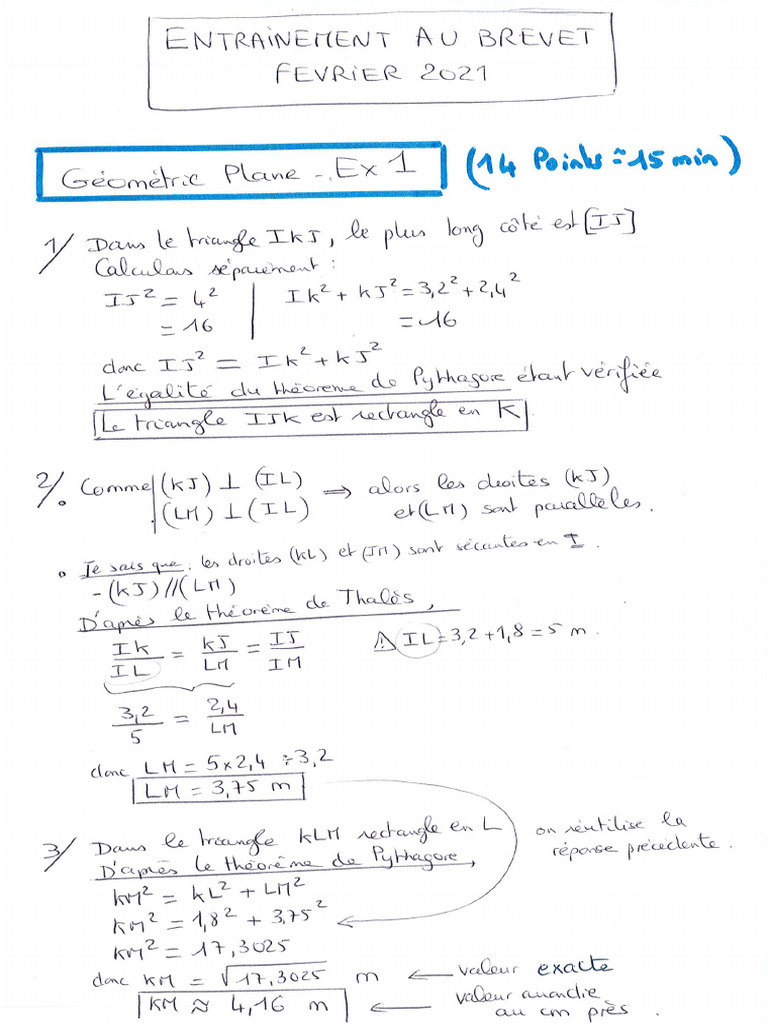 ENTRAINEMENT AU BREVET
FEVRIER 2021
Géométrie Plane - Ex 1 (14 Points ≈ 15 min)
1/ Dans le triangle IKJ, le plus long côté est [IJ]
Calculons séparément :
IJ² = 4² | IK² + KJ² = 3,2² + 2,4²
= 16 | = 16
donc IJ² = IK² + KJ²
L'égalité du théorème de Pythagore étant vérifiée
Le triangle IJK est rectangle en K
2/. Comme | (KJ) ⊥ (IL) ⇒ alors les droites (KJ)
| (LM) ⊥ (IL) et (LM) sont parallèles.
• Je sais que : les droites (KL) et (JM) sont sécantes en I.
- (KJ) // (LM)
D'après le théorème de Thalès,
IK/IL = KJ/LM = IJ/IM ⚠ IL = 3,2 + 1,8 = 5 m.
3,2/5 = 2,4/LM
donc LM = 5 × 2,4 ÷ 3,2
LM = 3,75 m
3/ Dans le triangle KLM rectangle en L
on réutilise la
réponse précédente.
D'après le théorème de Pythagore,
KM² = KL² + LM²
KM² = 1,8² + 3,75²
KM² = 17,3025
donc KM = √17,3025 m ← valeur exacte
KM ≈ 4,16 m ← valeur arrondie
au cm près.